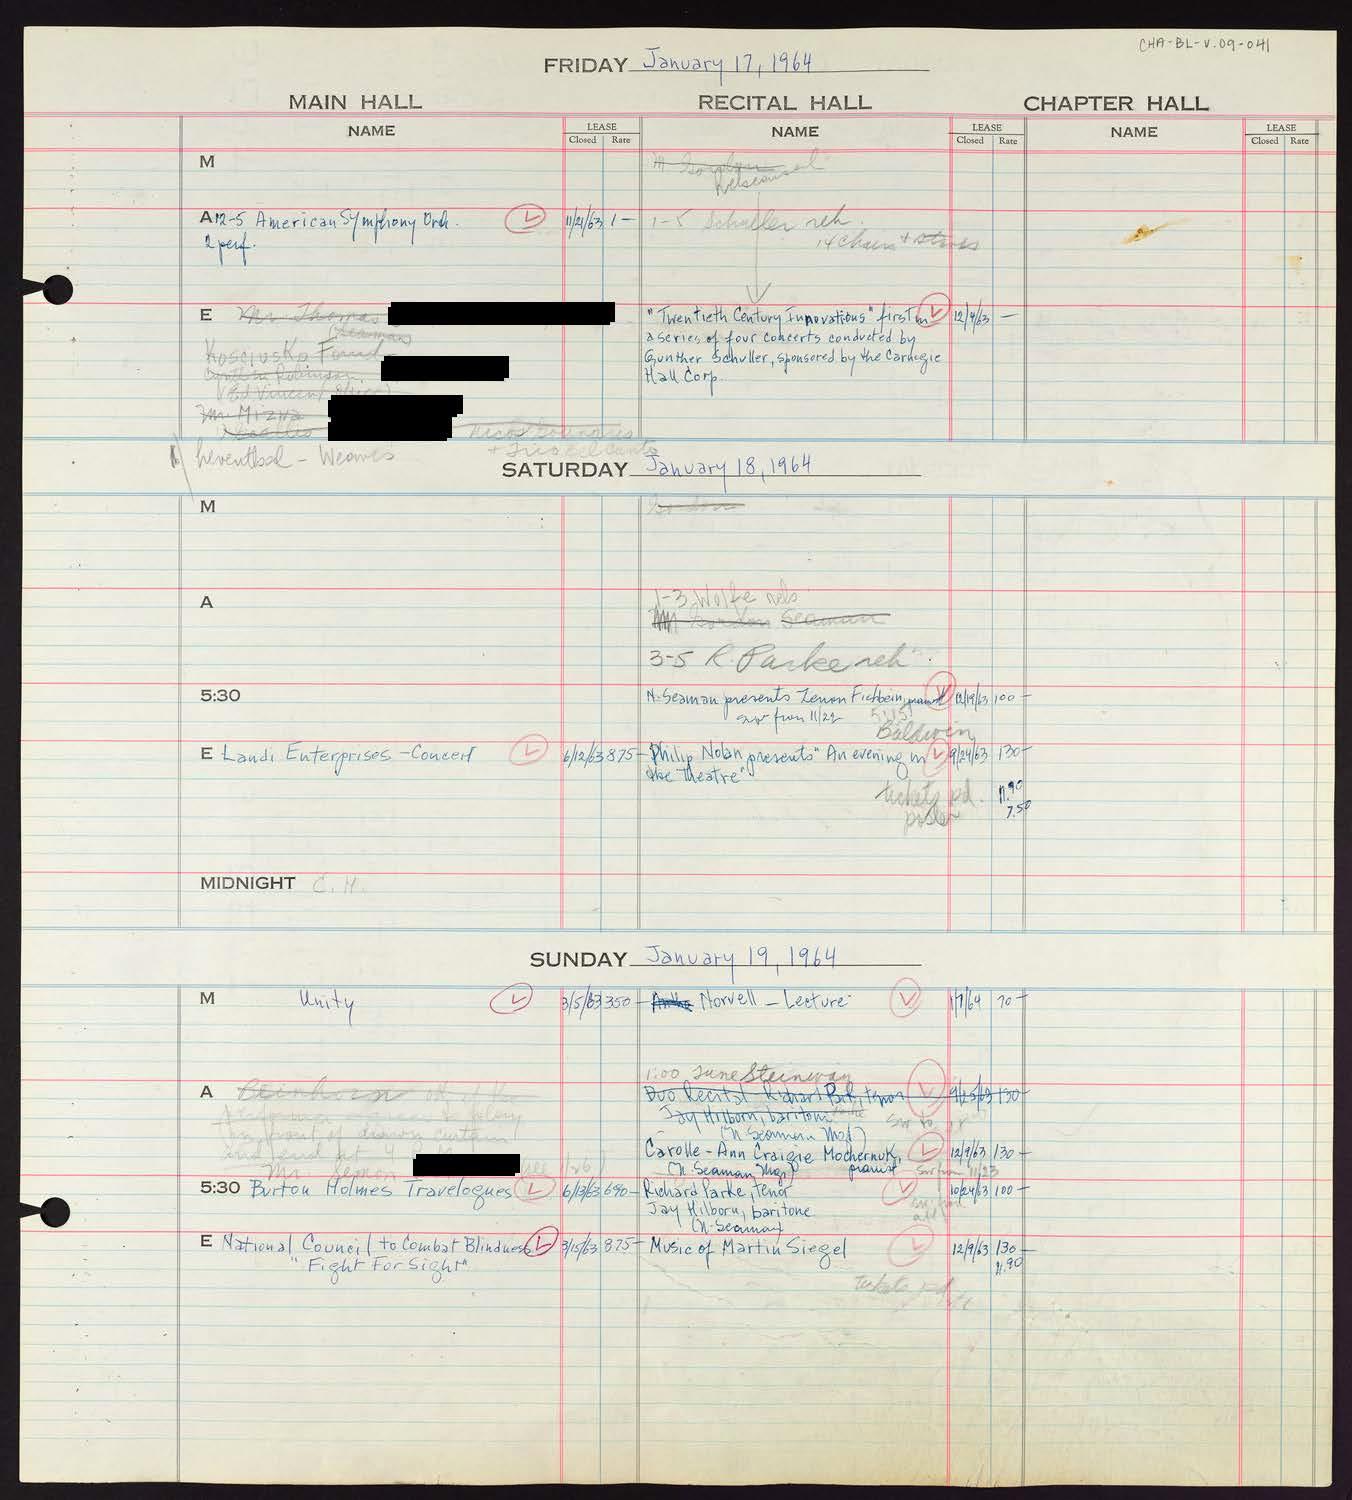 CHA-BL-V.09-041
FRIDAY January 17, 1964
MAIN HALL RECITAL HALL CHAPTER HALL
NAME LEASE NAME LEASE NAME LEASE
Closed Rate Closed Rate Closed Rate
M
A 12-5 American Symphony Orch. 11/21/63 1 — 1-5 Schuller reh.
2 perf. 14 chairs + stands
E Mr Thomas "Twentieth Century Innovations" first in 12/9/63 —
(Seaman) a series of four concerts conducted by
Kosciusko Found. Gunther Schuller, sponsored by the Carnegie
Cynthia Robinson Hall Corp.
Mr Mizwa
SATURDAY January 18, 1964
M Gordon
A 1-3 Wolfe reh
Gordon Seaman
3-5 R. Parke reh.
5:30 N. Seaman presents Zenon Fishbein, pianist 12/19/63 100 —
sw from 11/22 5:15
Baldwin
E Landi Enterprises - Concert 6/12/63 875 — Philip Nolan presents "An evening in 9/24/63 130 —
the Theatre"
tickets pd. 11.90
poster 7.50
MIDNIGHT C. H.
SUNDAY January 19, 1964
M Unity 3/5/63 350 — Norvell - Lecture 1/7/64 70 —
1:00 Tune Steinway
A Duo Recital Richard Park, tenor 9/25/63 130 —
in front of drawn curtain Jay Hilborn, baritone
(N Seaman Mgt)
Carolle-Ann Craigie Mochernuk, 12/9/63 130 —
Mr. (N Seaman Mgt) pianist sw from 11/23
5:30 Burton Holmes Travelogues 6/13/63 690 — Richard Parke, tenor 10/24/63 100 —
Jay Hilborn, baritone
(N. Seaman)
E National Council to Combat Blindness 3/15/63 875 — Music of Martin Siegel 12/9/63 130 —
"Fight For Sight" 11.90
tickets pd